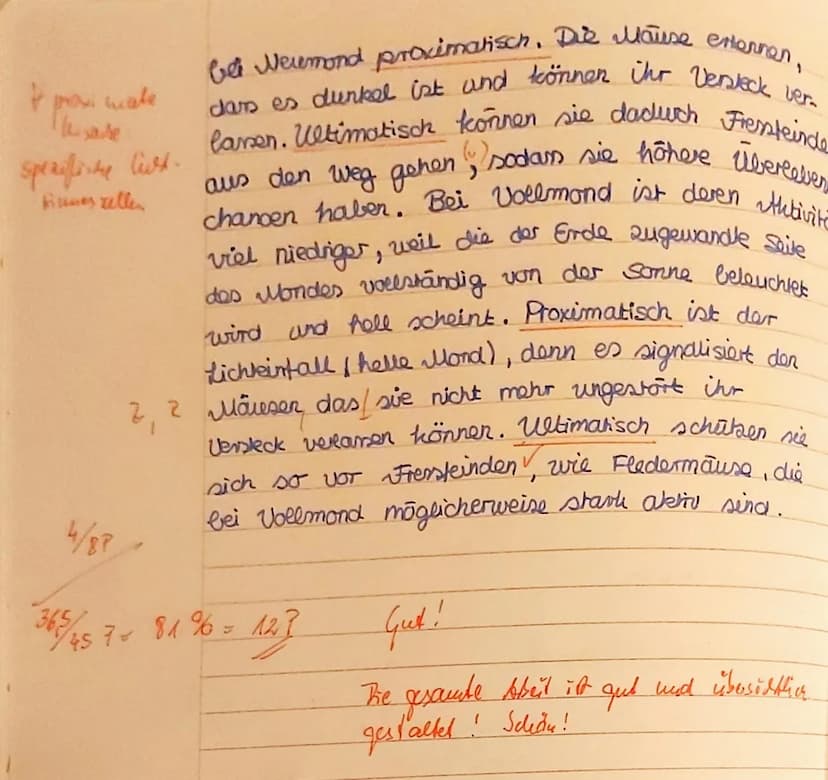 bei Neumond proximatisch. Die Mäuse erkennen,
dass es dunkel ist und können ihr Versteck ver-
lassen. Ultimatisch können sie dadurch Fressfeinde
aus den Weg gehen (,) sodass sie höhere Überleben
chancen haben. Bei Vollmond ist deren Aktivit
viel niedriger, weil die der Erde zugewandte Seite
des Mondes vollständig von der Sonne beleuchtet
wird und hell scheint. Proximatisch ist der
Lichteinfall (helle Mond), denn es signalisiert den
Mäusen, das sie nicht mehr ungestört ihr
Versteck verlassen können. Ultimatisch schützen sie
sich so vor Fressfeinden, wie Fledermäuse, die
bei Vollmond möglicherweise stark aktiv sind.
proximate
Ursache
spezifische Licht-
sinneszellen
Z, Z
4/8P
36,5/45 P = 81 % = 12 P
Gut!
Die gesamte Arbeit ist gut und übersichtlich
gestaltet! Schön!